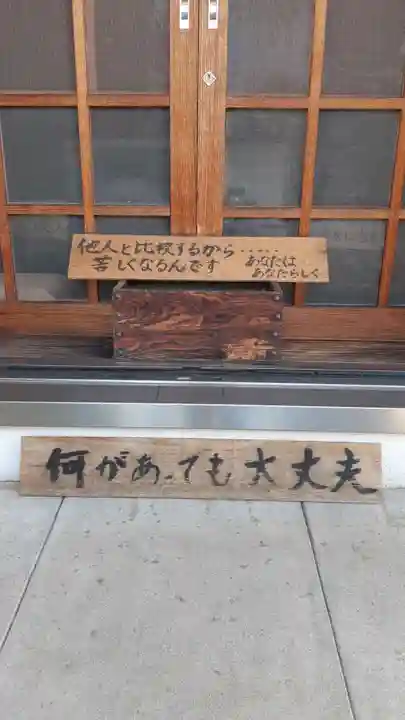 他人と比較するから.....
苦しくなるんです
あなたは
あなたらしく
何があっても大丈夫